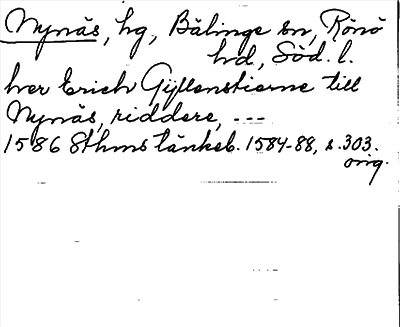 Nynäs, hg, Bälinge sn, Rönö
hd, Söd. l.
her Erich Gyllenstierne till
Nynäs, riddere, ---
1586 Sthms tänkeb. 1584-88, s. 303.
orig.